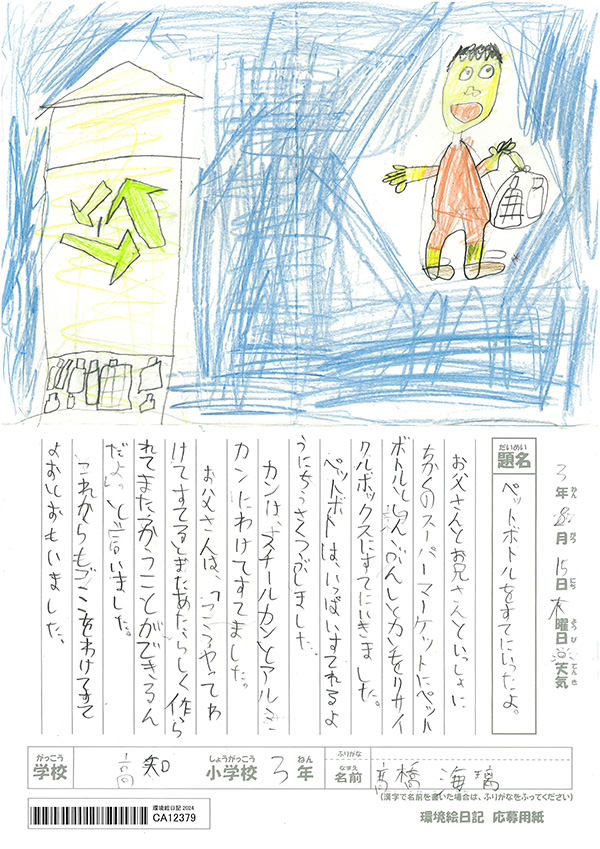 3年8月15日木曜日天気
ねん がつ にち ようび てんき
だいめい
題名
ペットボトルをすてにいったよ。
お父さんとお兄さんといっしょに
ちかくのスーパーマーケットにペット
ボトルとしんぶんしとカンをリサイ
クルボックスにすてにいきました。
ペットボトは、いっぱいすてれるよ
うにちっさくつぶしました。
カンは、スチールカンとアルミ
カンにわけてすてました。
お父さんは、「こうやってわ
けてすてるとまたあたらしく作ら
れてまたつかうことができるん
だよ。」と言いました。
これからもゴミをわけてすて
ようとおもいました。
がっこう
学校
高知
しょうがっこう
小学校
3
ねん
年
ふりがな
なまえ
名前
高橋 海璃
(漢字で名前を書いた場合は、ふりがなをふってください)
環境絵日記 2024
CA12379
環境絵日記 応募用紙